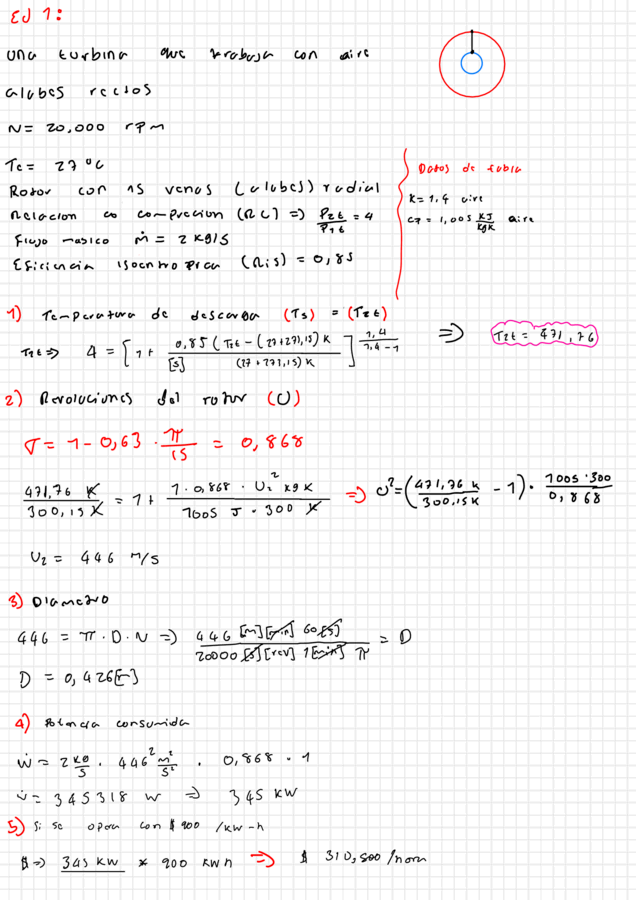 EJ 1:
una turbina que trabaja con aire
alabes rectos
N = 20,000 rpm
Te = 27 °C
Rotor con 15 venas (alabes) radial
Relacion de comprecion (RC) => P2t/P1t = 4
Flujo masico ṁ = 2 kg/s
Eficiencia isoentropica (nis) = 0,85
Datos de tabla
K = 1,4 aire
cp = 1,005 KJ/KgK aire
1) Temperatura de descarga (Ts) = (T2t)
T2t => 4 = [1 + 0,85 (T2t - (27+273,15) K / [s] (27+273,15) K]^(1,4/1,4-1) => T2t = 471,76
2) Revoluciones del rotor (U)
σ = 1 - 0,63 · π/15 = 0,868
471,76 K/300,15 K = 1 + 1 · 0,868 · U2² Kg K/1005 J · 300 K => U² = (471,76 K/300,15K - 1) · 1005 · 300/0,868
U2 = 446 m/s
3) Diametro
446 = π · D · N => 446 [m][min] 60[s]/20000 [s][rev] 1[min] π = D
D = 0,426[m]
4) Potencia consumida
ẇ = 2 kg/s · 446² m²/s² · 0,868 · 1
ẇ = 345318 W => 345 KW
5) Si se opera con $ 900 /KW-h
$ => 345 KW * 900 KWh => $ 310,500 /hora